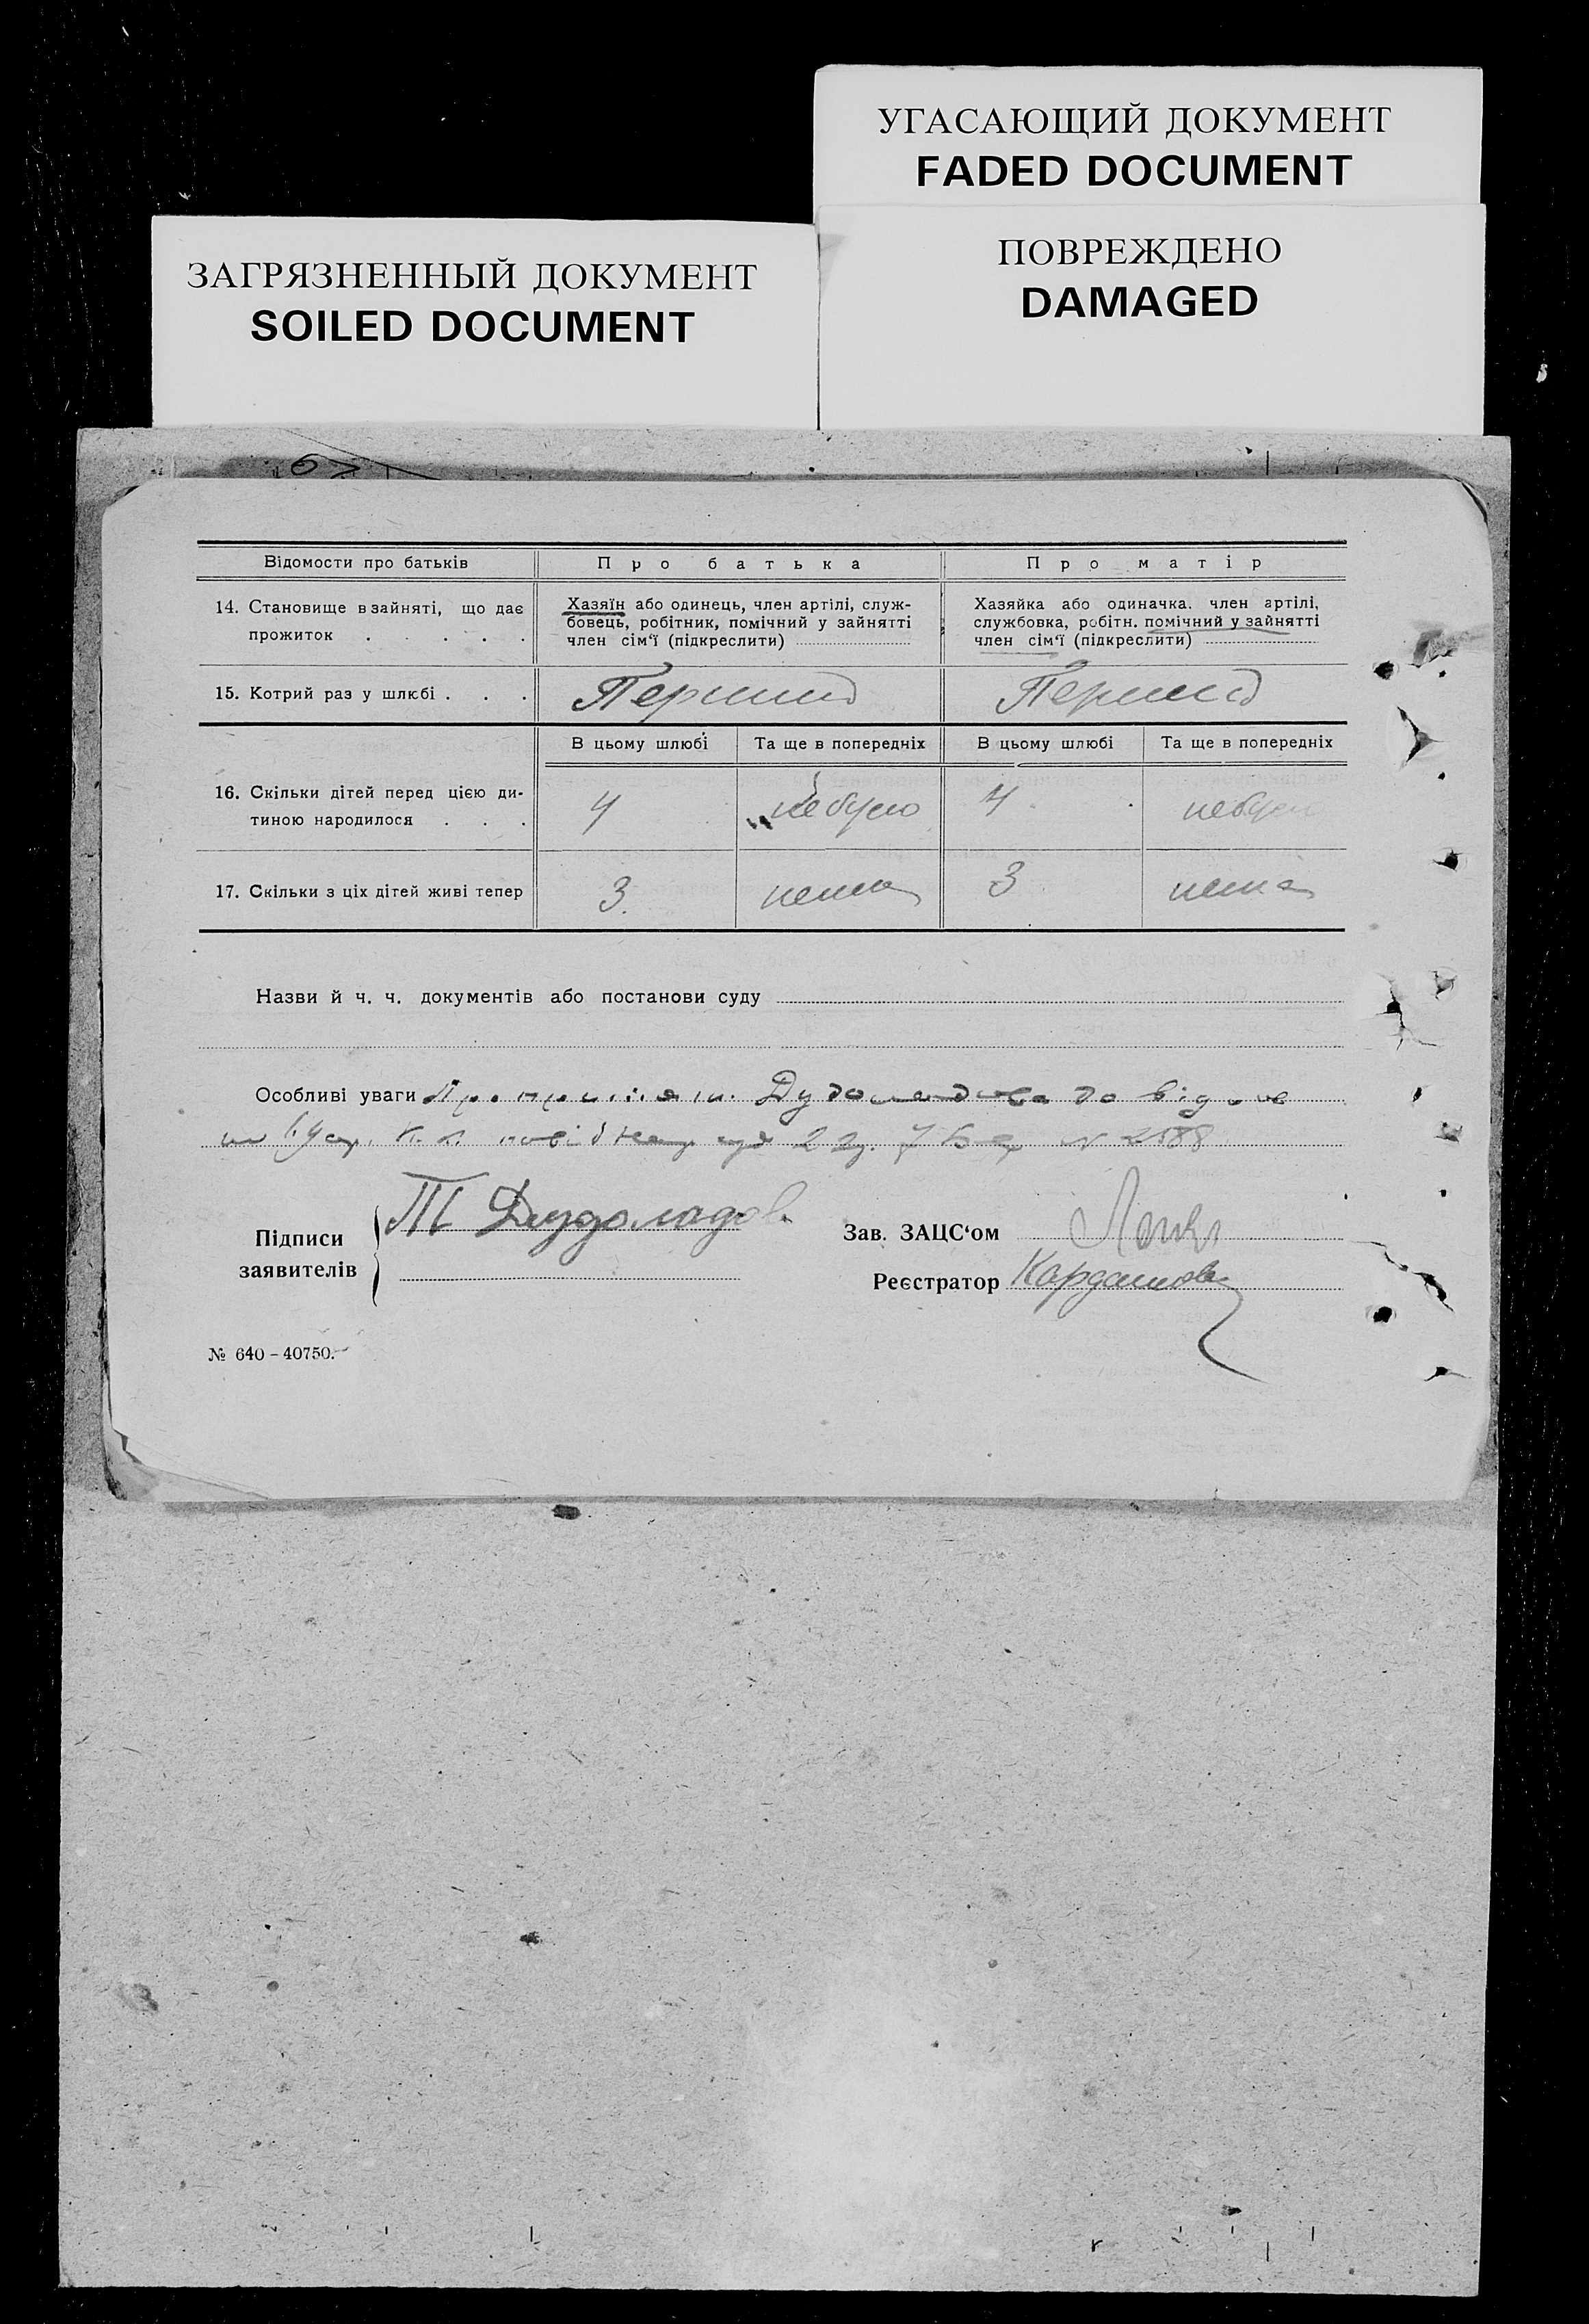 УГАСАЮЩИЙ ДОКУМЕНТ
FADED DOCUMENT
ПОВРЕЖДЕНО
DAMAGED
ЗАГРЯЗНЕННЫЙ ДОКУМЕНТ
SOILED DOCUMENT
Відомости про батьків
Про батька
Про матір
14. Становище в зайняті, що дає
прожиток . . . . .
Хазяїн або одинець, член артілі, служ-
бовець, робітник, помічний у зайнятті
член сім‘ї (підкреслити)
Хазяйка або одиначка. член артілі,
службовка, робітн. помічний у зайнятті
член сім‘ї (підкреслити)
15. Котрий раз у шлюбі . . .
Перший
Перший
В цьому шлюбі
Та ще в попередніх
В цьому шлюбі
Та ще в попередніх
16. Скільки дітей перед цією ди-
тиною народилося . . .
4
небуло
4
небуло
17. Скільки з ціх дітей живі тепер
3.
нема
3
нема
Назви й ч. ч. документів або постанови суду
Особливі уваги
№ 2588
Підписи
заявителів
Зав. ЗАЦС‘ом
Реєстратор
№ 640 – 40750.